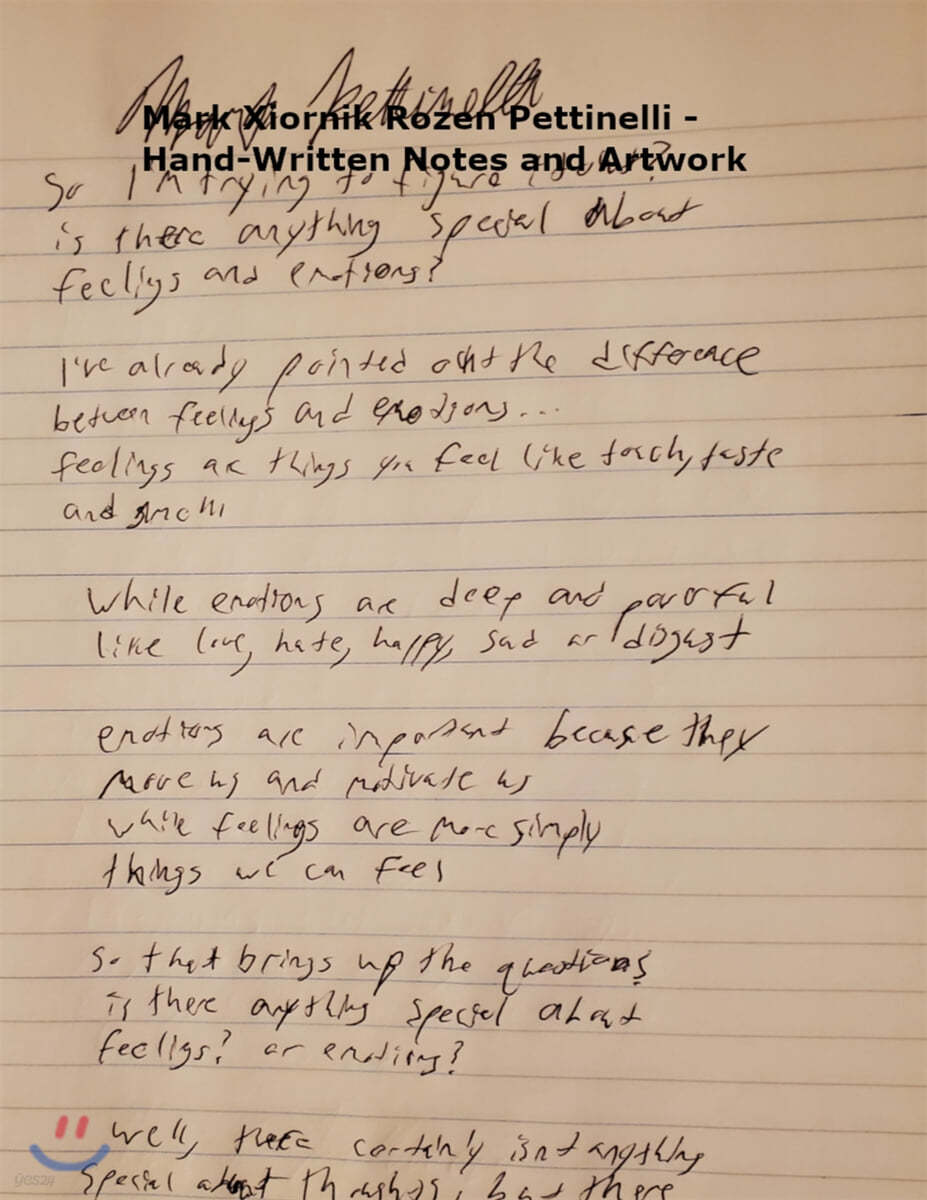 Mark Pettinelli
Mark Xiornik Rozen Pettinelli -
Hand-Written Notes and Artwork
So I'm trying to figure
is there anything special about
feeligs and emotions?
I've already pointed out the difference
between feelings and emotions...
feelings are things you feel like touch, taste
and smell
While emotions are deep and powerful
like love, hate, happy, sad or disgust
emotions are important because they
move us and motivate us
while feelings are more simply
things we can feel
So that brings up the questions
is there anything special about
feeligs? or emotions?
Well, there certainly isnt anything
special about thoughts, but there
yes24